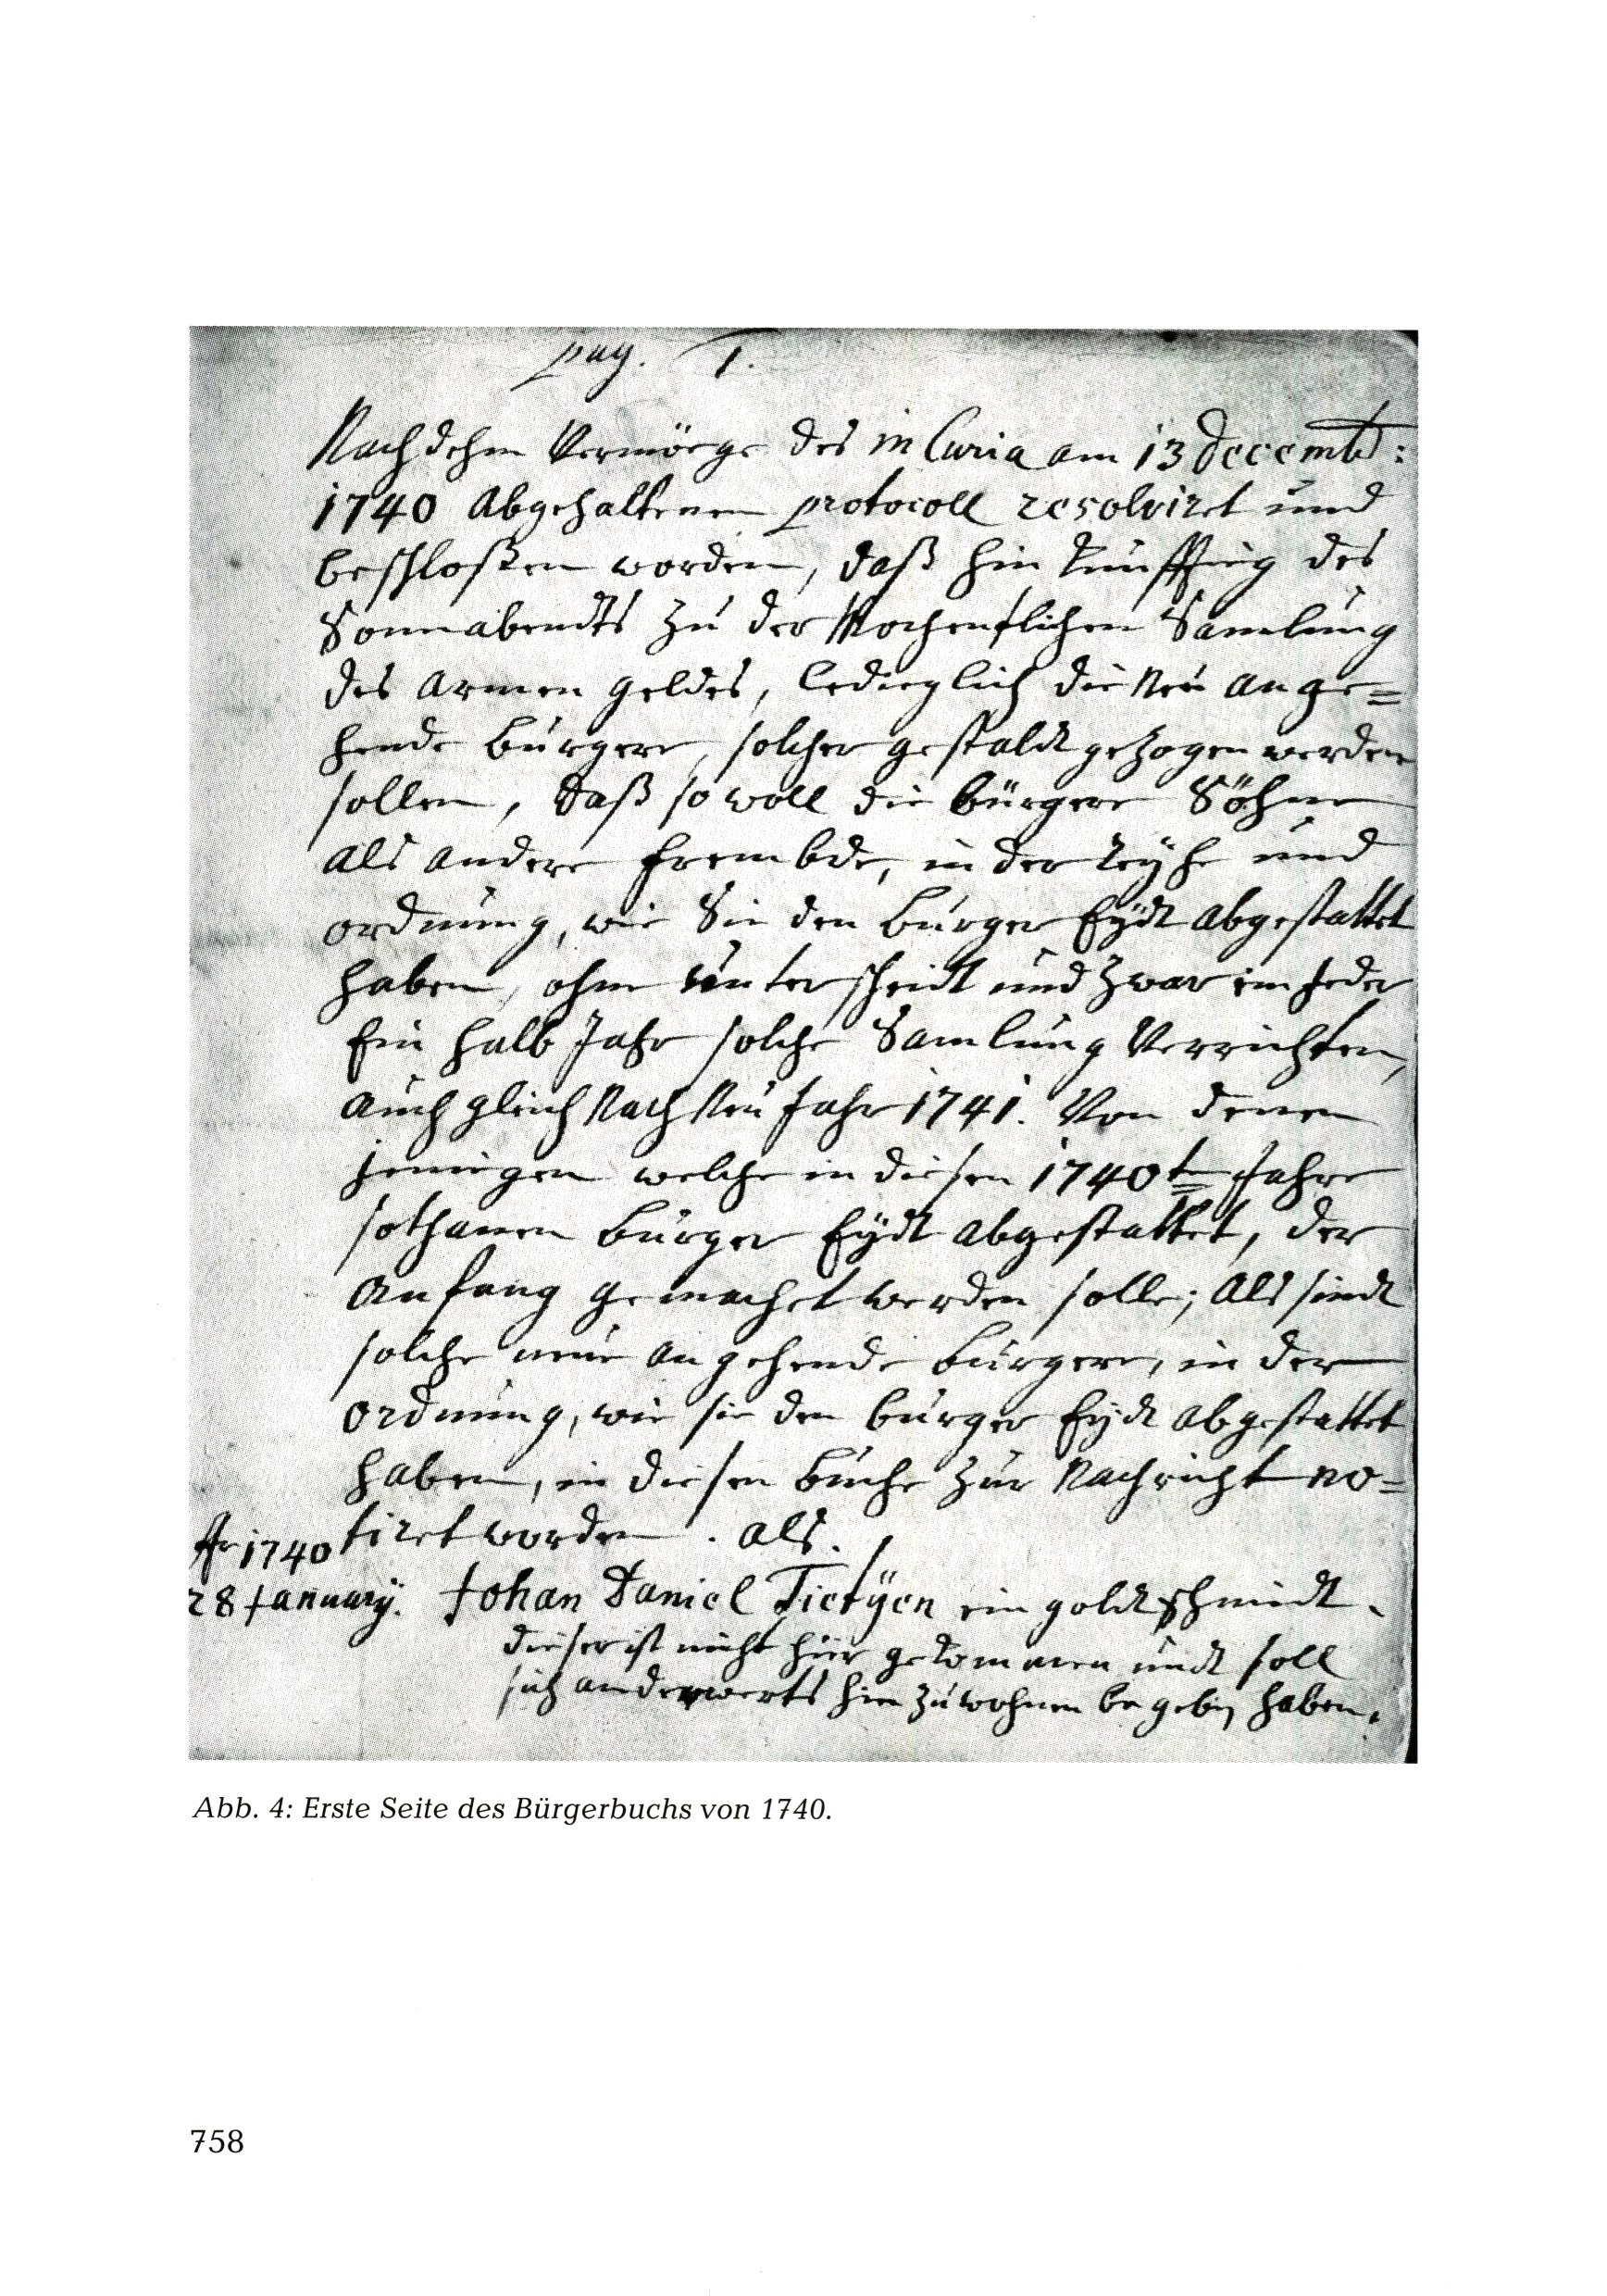 pag. 1.
Nachdehm Vermöege des in Curia am 13 Decembr:
1740 Abgehaltenen protocoll resolviret und
beschloßen worden, daß hin künfftig des
Sonnabendts zu der Wochentlichen Samlung
des Armen geldes, lediglich die Neu ange=
hende Bürgere, solcher gestaldt gezogen werden
sollen, daß so woll die bürgere Söhne
als andere frembde, in der Reyhe und
ordnung, wie Sie den Bürger Eydt abgestattet
haben, ohne unterscheidt und zwar ein jeder
Ein halb Jahr solche Samlung Verrichten,
auch gleich Nach Neu Jahr 1741. Von denen
jenigen welche in diesen 1740t Jahre
sothanen Bürger Eydt abgestattet, der
Anfang gemachet werden solle; Als sindt
solche neue angehende Bürgere, in der
Ordnung, wie sie den bürger Eydt abgestattet
haben, in diesen Buche zur Nachricht no=
tiret worden. Als.
1740
28 January. Johan Daniel Tietyen ein goldtschmidt.
dieser ist nicht hier gekommen undt soll
sich anderwerts hin zu wohnen begeben haben.
Abb. 4: Erste Seite des Bürgerbuchs von 1740.
758